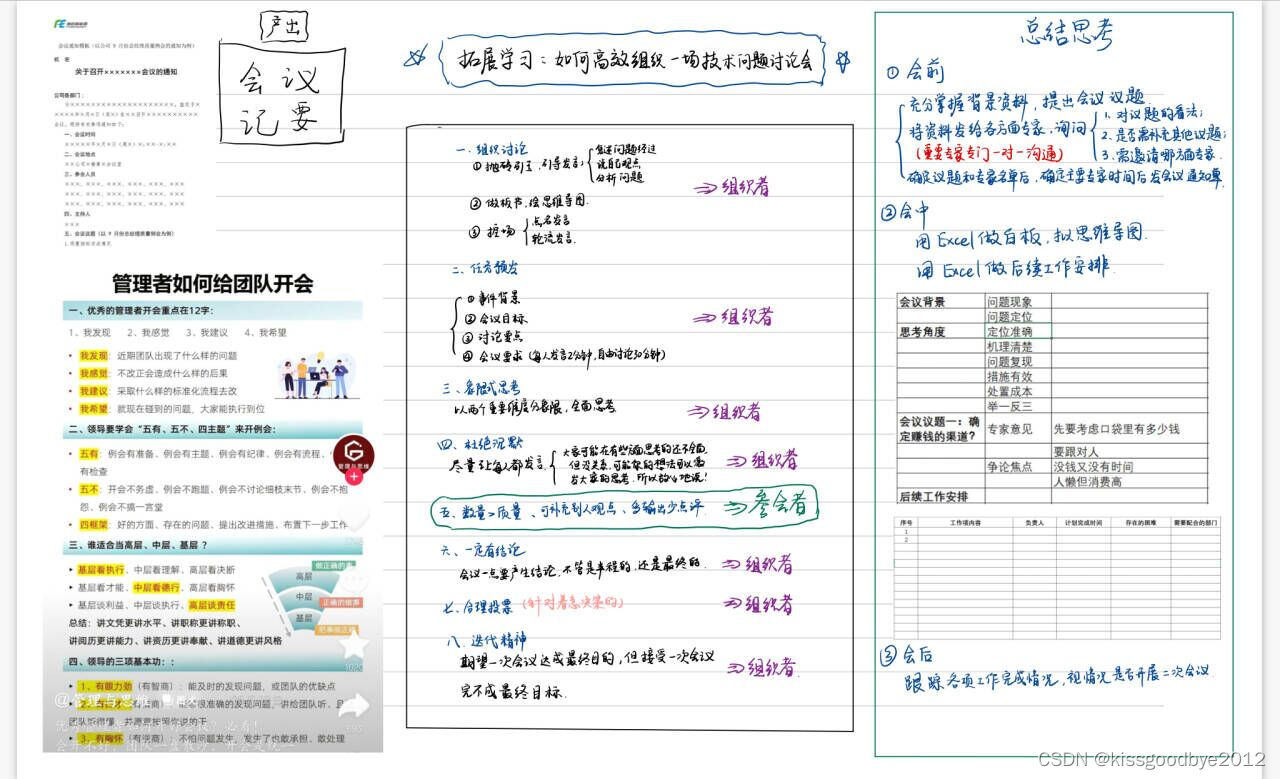 产出
会议
记要
会议通知模板（以公司 9 月份总经理质量例会的通知为例）
关于召开×××××××会议的通知
公司各部门：
一、会议时间
二、会议地点
三、参会人员
四、主持人
×××
五、会议议题（以 9 月份总经理质量例会为例）
管理者如何给团队开会
一、优秀的管理者开会重点在12字：
1、我发现 2、我感觉 3、我建议 4、我希望
• 我发现：近期团队出现了什么样的问题
• 我感觉：不改正会造成什么样的后果
• 我建议：采取什么样的标准化流程去改
• 我希望：就现在碰到的问题，大家能执行到位
二、领导要学会“五有、五不、四主题”来开例会：
• 五有：例会有准备、例会有主题、例会有纪律、例会有流程、
有检查
• 五不：开会不务虚、例会不跑题、例会不讨论细枝末节、例会不抱
怨、例会不搞一言堂
• 四框架：好的方面、存在的问题、提出改进措施、布置下一步工作
管理与思维
三、谁适合当高层、中层、基层？
‣ 基层看执行、中层看理解、高层看决断
‣ 基层看才能、中层看德行、高层看胸怀
‣ 基层谈利益、中层谈执行、高层谈责任
总结：讲文凭更讲水平、讲职称更讲称职、
讲阅历更讲能力、讲资历更讲奉献、讲道德更讲风格
高层
中层
基层
做正确的事
正确的做事
把事做正确
四、领导的三项基本功：:
‣ 1、有眼力劲（有智商）：能及时的发现问题，或团队的优缺点
@管理与思维
很准确的发现问题，讲给团队听，且
‣ 3、有胸怀（有逆商）：不怕问题发生，发生了也敢承担、敢处理
拓展学习：如何高效组织一场技术问题讨论会
一、组织讨论
① 抛砖引玉，引导发言：
叙述问题经过
说自己观点
分析问题
⇒组织者
② 做板书，绘思维导图.
③ 控场
点名发言
轮流发言.
二、任务预发
① 事件背景
② 会议目标
③ 讨论重点
④ 会议要求（每人发言2分钟，自由讨论30分钟）
⇒组织者
三、象限式思考
以两个重要维度分象限，全面思考
⇒组织者
四、杜绝沉默
尽量让每人都发言
大家可能在有些方面思考的还不全面，
⇒组织者
五、数量>质量、可补充别人观点、多输出少点评.
⇒参会者
六、一定有结论
会议一定要产生结论，不管是半程的，还是最终的.
⇒组织者
七、合理投票（针对着急决策的）
⇒组织者
八、迭代精神
期望一次会议达成最终目的，但接受一次会议
完不成最终目标.
⇒组织者
总结思考
① 会前
充分掌握背景资料，提出会议议题.
将资料发给各方面专家，询问
（重要专家专门一对一沟通）
1. 对议题的看法；
2. 是否需补充其他议题；
3. 需邀请哪方面专家.
确定议题和专家名单后，确定主要专家时间后发会议通知单.
② 会中
用 Excel 做白板，拟思维导图.
用 Excel 做后续工作安排.
会议背景 问题现象
问题定位
思考角度 定位准确
机理清楚
问题复现
措施有效
处置成本
举一反三
会议议题一：确定赚钱的渠道？ 专家意见 先要考虑口袋里有多少钱
要跟对人
争论焦点 没钱又没有时间
人懒但消费高
后续工作安排
序号 工作项内容 负责人 计划完成时间 存在的困难 需要配合的部门
1
2
③ 会后
跟踪各项工作完成情况，视情况是否开展二次会议
CSDN @kissgoodbye2012